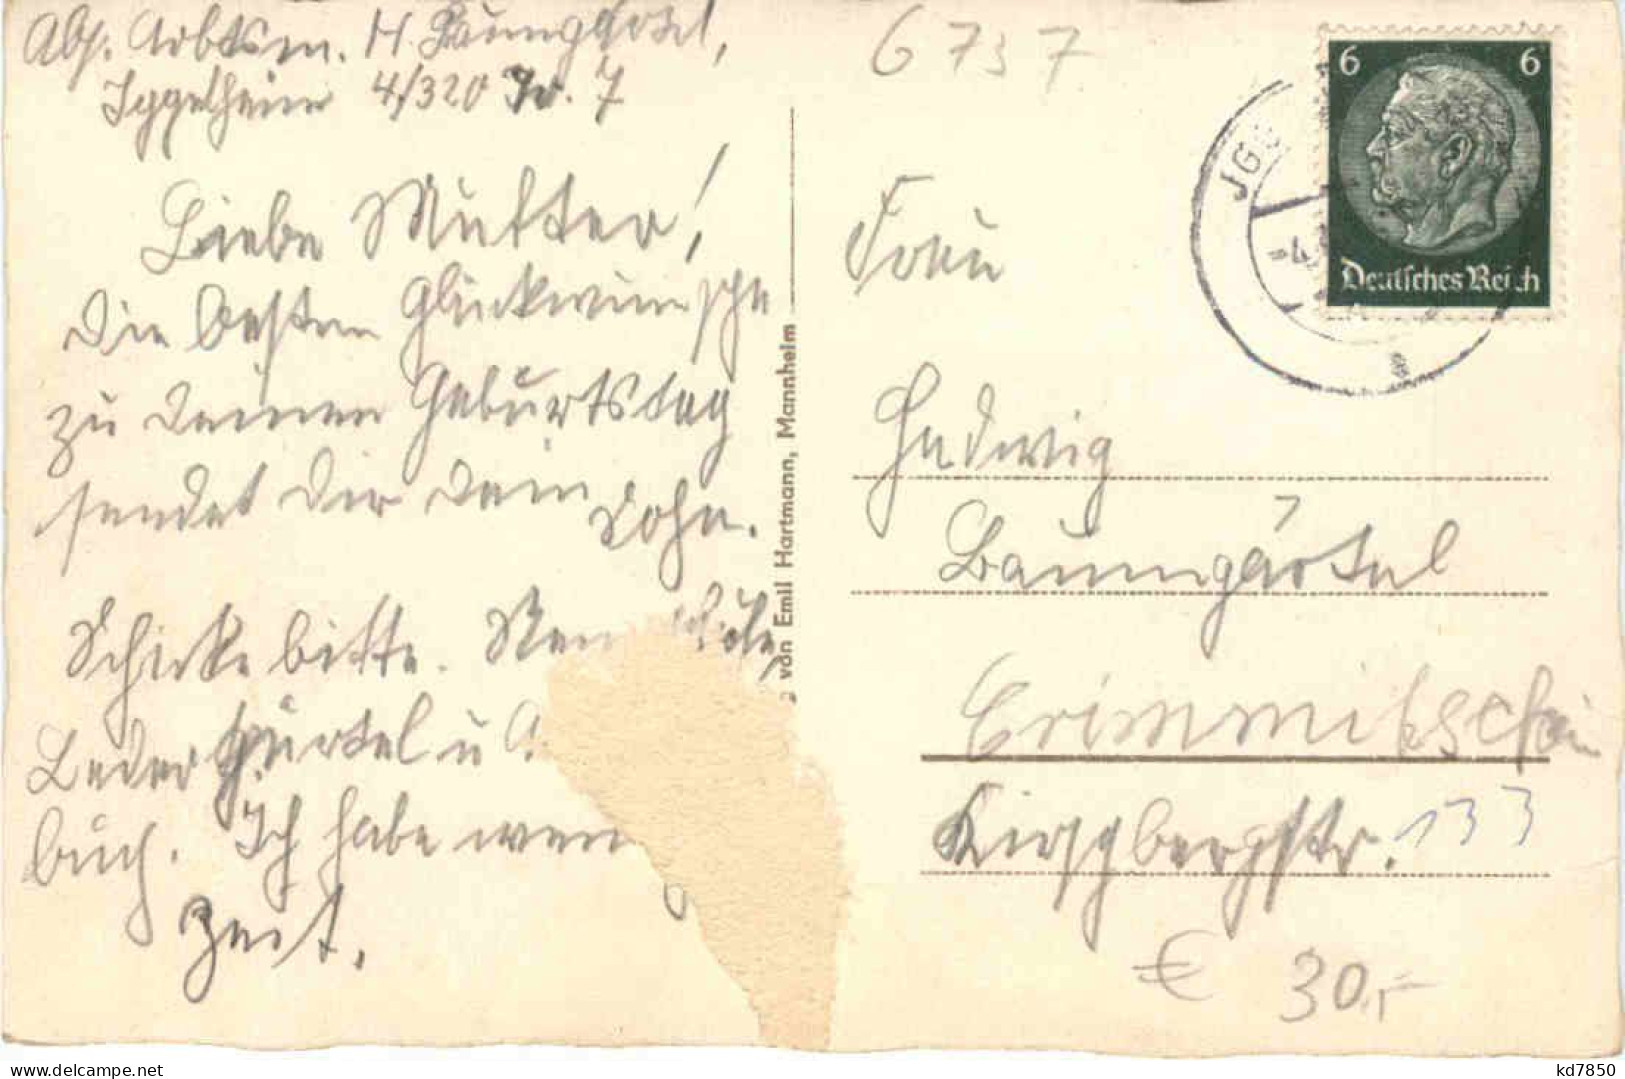 Abs. Arbtsm. H. Baumgärtel,
Iggelheim 4/320 Jo. 7
Liebe Mutter!
Die besten Glückwünsche
zu deinen Geburtstag
sendet Dir dein
Sohn.
Schicke bitte.
Leder gürtel u
buch. Ich habe wen
Zeit.
von Emil Hartmann, Mannheim
6737
6 6
Deutsches Reich
JG
-4.
a
Frau
Hedwig
Baumgärtel
Crimmitschau
Kirchbergstr. 133
€ 30,-
kd7850